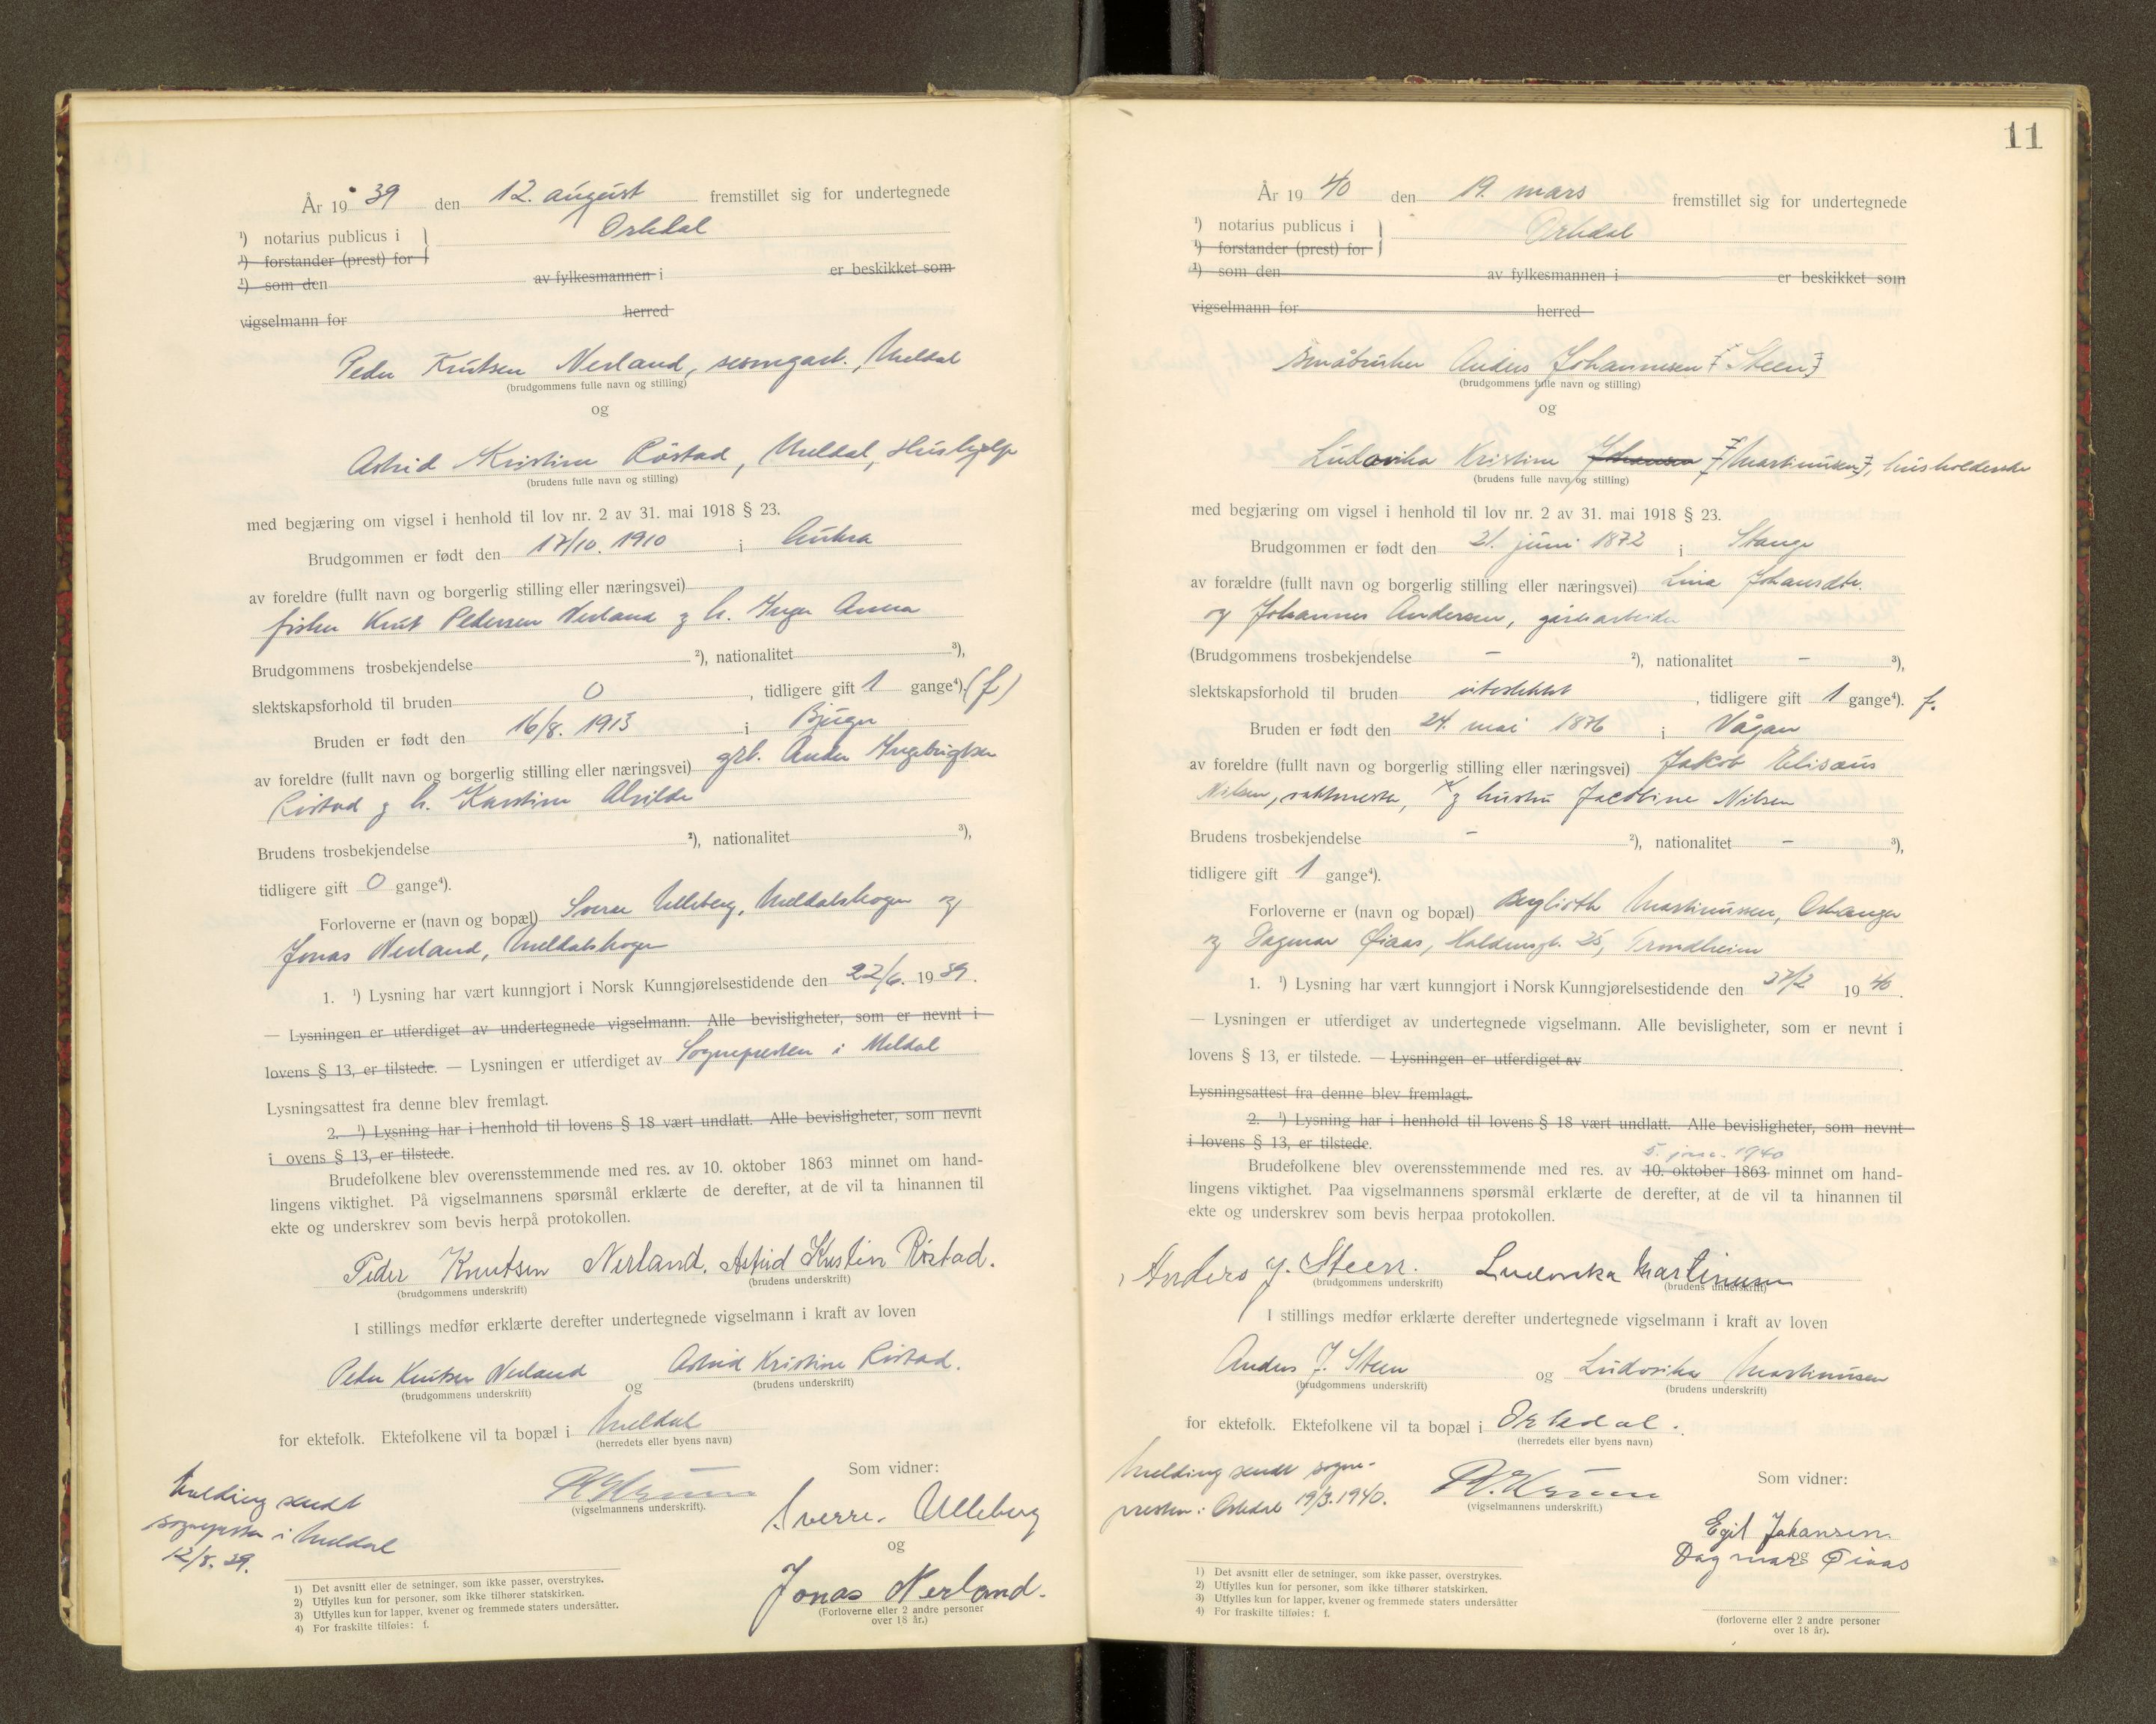 År 19 39 den 12. august fremstillet sig for undertegnede
¹) notarius publicus i Orkdal
¹) forstander (prest) for
¹) som den av fylkesmannen i er beskikket som
vigselmann for herred
Peder Knutsen Nerland, sesongarb., Meldal
(brudgommens fulle navn og stilling)
og
Astrid Kristine Ristad, Meldal, Hushjelp
(brudens fulle navn og stilling)
med begjæring om vigsel i henhold til lov nr. 2 av 31. mai 1918 § 23.
Brudgommen er født den 17/10. 1910 i Aukra
av foreldre (fullt navn og borgerlig stilling eller næringsvei)
fisker Knut Pedersen Nerland g h. Inger Anna
Brudgommens trosbekjendelse ²), nationalitet ³),
slektskapsforhold til bruden 0, tidligere gift 1 gange⁴). (f)
Bruden er født den 16/8. 1913 i Bjugn
av foreldre (fullt navn og borgerlig stilling eller næringsvei) grb. Anders Ingebrigtsen
Ristad g h. Karstine Alvilde
Brudens trosbekjendelse ²), nationalitet ³),
tidligere gift 0 gange⁴).
Forloverne er (navn og bopæl) Sverre Ulleberg, Meldalskogen og
Jonas Nerland, Meldalskogen
1. ¹) Lysning har vært kunngjort i Norsk Kunngjørelsestidende den 22/6. 19 39.
— Lysningen er utferdiget av undertegnede vigselmann. Alle bevisligheter, som er nevnt i
lovens § 13, er tilstede. — Lysningen er utferdiget av Sognepresten i Meldal
Lysningsattest fra denne blev fremlagt.
2. ¹) Lysning har i henhold til lovens § 18 vært undlatt. Alle bevisligheter, som nevnt
i ovens § 13, er tilstede.
Brudefolkene blev overensstemmende med res. av 10. oktober 1863 minnet om hand-
lingens viktighet. På vigselmannens spørsmål erklærte de derefter, at de vil ta hinannen til
ekte og underskrev som bevis herpå protokollen.
Peder Knutsen Nerland. Astrid Kristin Ristad.
(brudgommens underskrift) (brudens underskrift)
I stillings medfør erklærte derefter undertegnede vigselmann i kraft av loven
Peder Knutsen Nerland og Astrid Kristine Ristad.
(brudgommens underskrift) (brudens underskrift)
for ektefolk. Ektefolkene vil ta bopæl i Meldal
(herredets eller byens navn)
Melding sendt
sognepresten i Meldal
12/8. 39.
(vigselmannens underskrift).
Som vidner:
Sverre. Ulleberg
og
Jonas Nerland.
(Forloverne eller 2 andre personer
over 18 år.)
1) Det avsnitt eller de setninger, som ikke passer, overstrykes.
2) Utfylles kun for personer, som ikke tilhører statskirken.
3) Utfylles kun for lapper, kvener og fremmede staters undersåtter.
4) For fraskilte tilføies: f.
11
År 19 40 den 19. mars fremstillet sig for undertegnede
¹) notarius publicus i Orkdal
¹) forstander (prest) for
¹) som den av fylkesmannen i er beskikket som
vigselmann for herred
småbruker Anders Johannesen Steen
(brudgommens fulle navn og stilling)
og
Ludovika Kristine Johansen Martinusen, husholderske
(brudens fulle navn og stilling)
med begjæring om vigsel i henhold til lov nr. 2 av 31. mai 1918 § 23.
Brudgommen er født den 21. juni 1872 i Stange
av forældre (fullt navn og borgerlig stilling eller næringsvei) Lina Johansdtr.
og Johannes Andersen, gårdsarbeider
(Brudgommens trosbekjendelse - ²), nationalitet - ³),
slektskapsforhold til bruden ubeslektet, tidligere gift 1 gange⁴). f.
Bruden er født den 24. mai 1876 i Vågan
av foreldre (fullt navn og borgerlig stilling eller næringsvei) Jakob Elisæus
Nilsen, g hustru Jacobine Nilsen
Brudens trosbekjendelse - ²), nationalitet - ³),
tidligere gift 1 gange⁴).
Forloverne er (navn og bopæl) Berglioth Martinussen, Orkanger
og Dagmar Øiaas, 25, Trondheim
1. ¹) Lysning har vært kunngjort i Norsk Kunngjørelsestidende den 27/2 19 40.
— Lysningen er utferdiget av undertegnede vigselmann. Alle bevisligheter, som er nevnt i
lovens § 13, er tilstede. — Lysningen er utferdiget av
Lysningsattest fra denne blev fremlagt.
2. ¹) Lysning har i henhold til lovens § 18 vært undlatt. Alle bevisligheter, som nevnt
i lovens § 13, er tilstede.
5. jan. 1940
Brudefolkene blev overensstemmende med res. av 10. oktober 1863 minnet om hand-
lingens viktighet. Paa vigselmannens spørsmål erklærte de derefter, at de vil ta hinannen til
ekte og underskrev som bevis herpaa protokollen.
Anders J. Steen. Ludovika Martinusen
(brudgommens underskrift) (brudens underskrift)
I stillings medfør erklærte derefter undertegnede vigselmann i kraft av loven
Anders J. Steen og Ludovika Martinusen
(brudgommens underskrift) (brudens underskrift)
for ektefolk. Ektefolkene vil ta bopæl i Orkdal.
(herredets eller byens navn)
Melding sendt sogne-
presten i Orkdal 19/3. 1940.
(vigselmannens underskrift.)
Som vidner:
Egil Johansen.
og
Dagmar Øiaas
(forloverne eller 2 andre personer
over 18 år).
1) Det avsnitt eller de setninger, som ikke passer, overstrykes.
2) Utfylles kun for personer, som ikke tilhører statskirken.
3) Utfylles kun for lapper, kvener og fremmede staters undersåtter
4) For fraskilte tilføies: f.